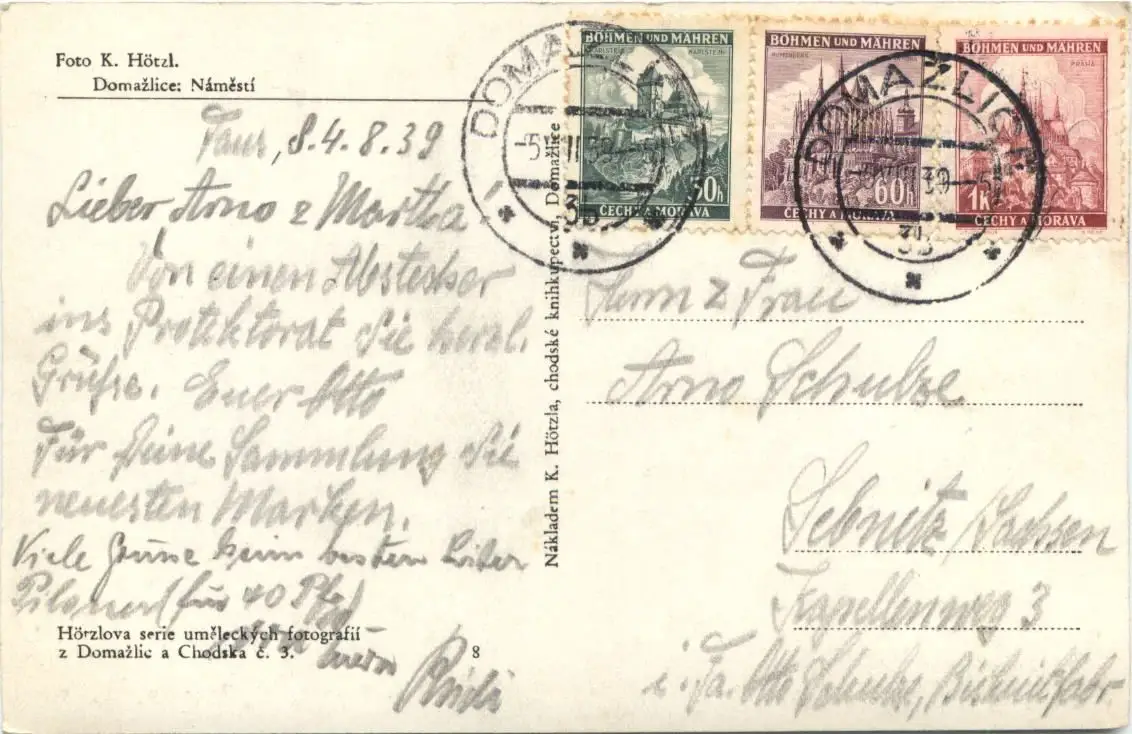 Foto K. Hötzl.
Domažlice: Náměstí
Taus, 8.4.8.39
Lieber Arno & Martha
Von einen Abstecher
ins Protektorat die herzl.
Grüße. Euer Otto
Für Deine Sammlung die
neuesten Marken.
Viele Grüße beim besten Liter
Pilsner (für 40 Pfg)
Hötzlova serie uměleckých fotografií
z Domažlic a Chodska č. 3.
8
Nákladem K. Hötzla, chodské knihkupectví, Domažlice
BÖHMEN UND MÄHREN
KARLSTEIN
KARLŠTEJN
50h
ČECHY A MORAVA
BÖHMEN UND MÄHREN
60h
ČECHY A MORAVA
BÖHMEN UND MÄHREN
PRAHA
1K
ČECHY A MORAVA
DOMAŽLICE
DOMAŽLICE
Herrn & Frau
Arno Schulze
Sebnitz/Sachsen
3
i. Fa. Otto Schulze,